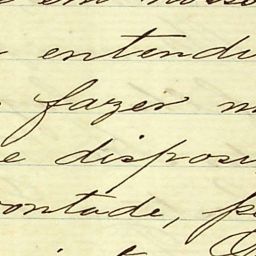 em nosso
entendi
fazer m
e disposi
vontade, p